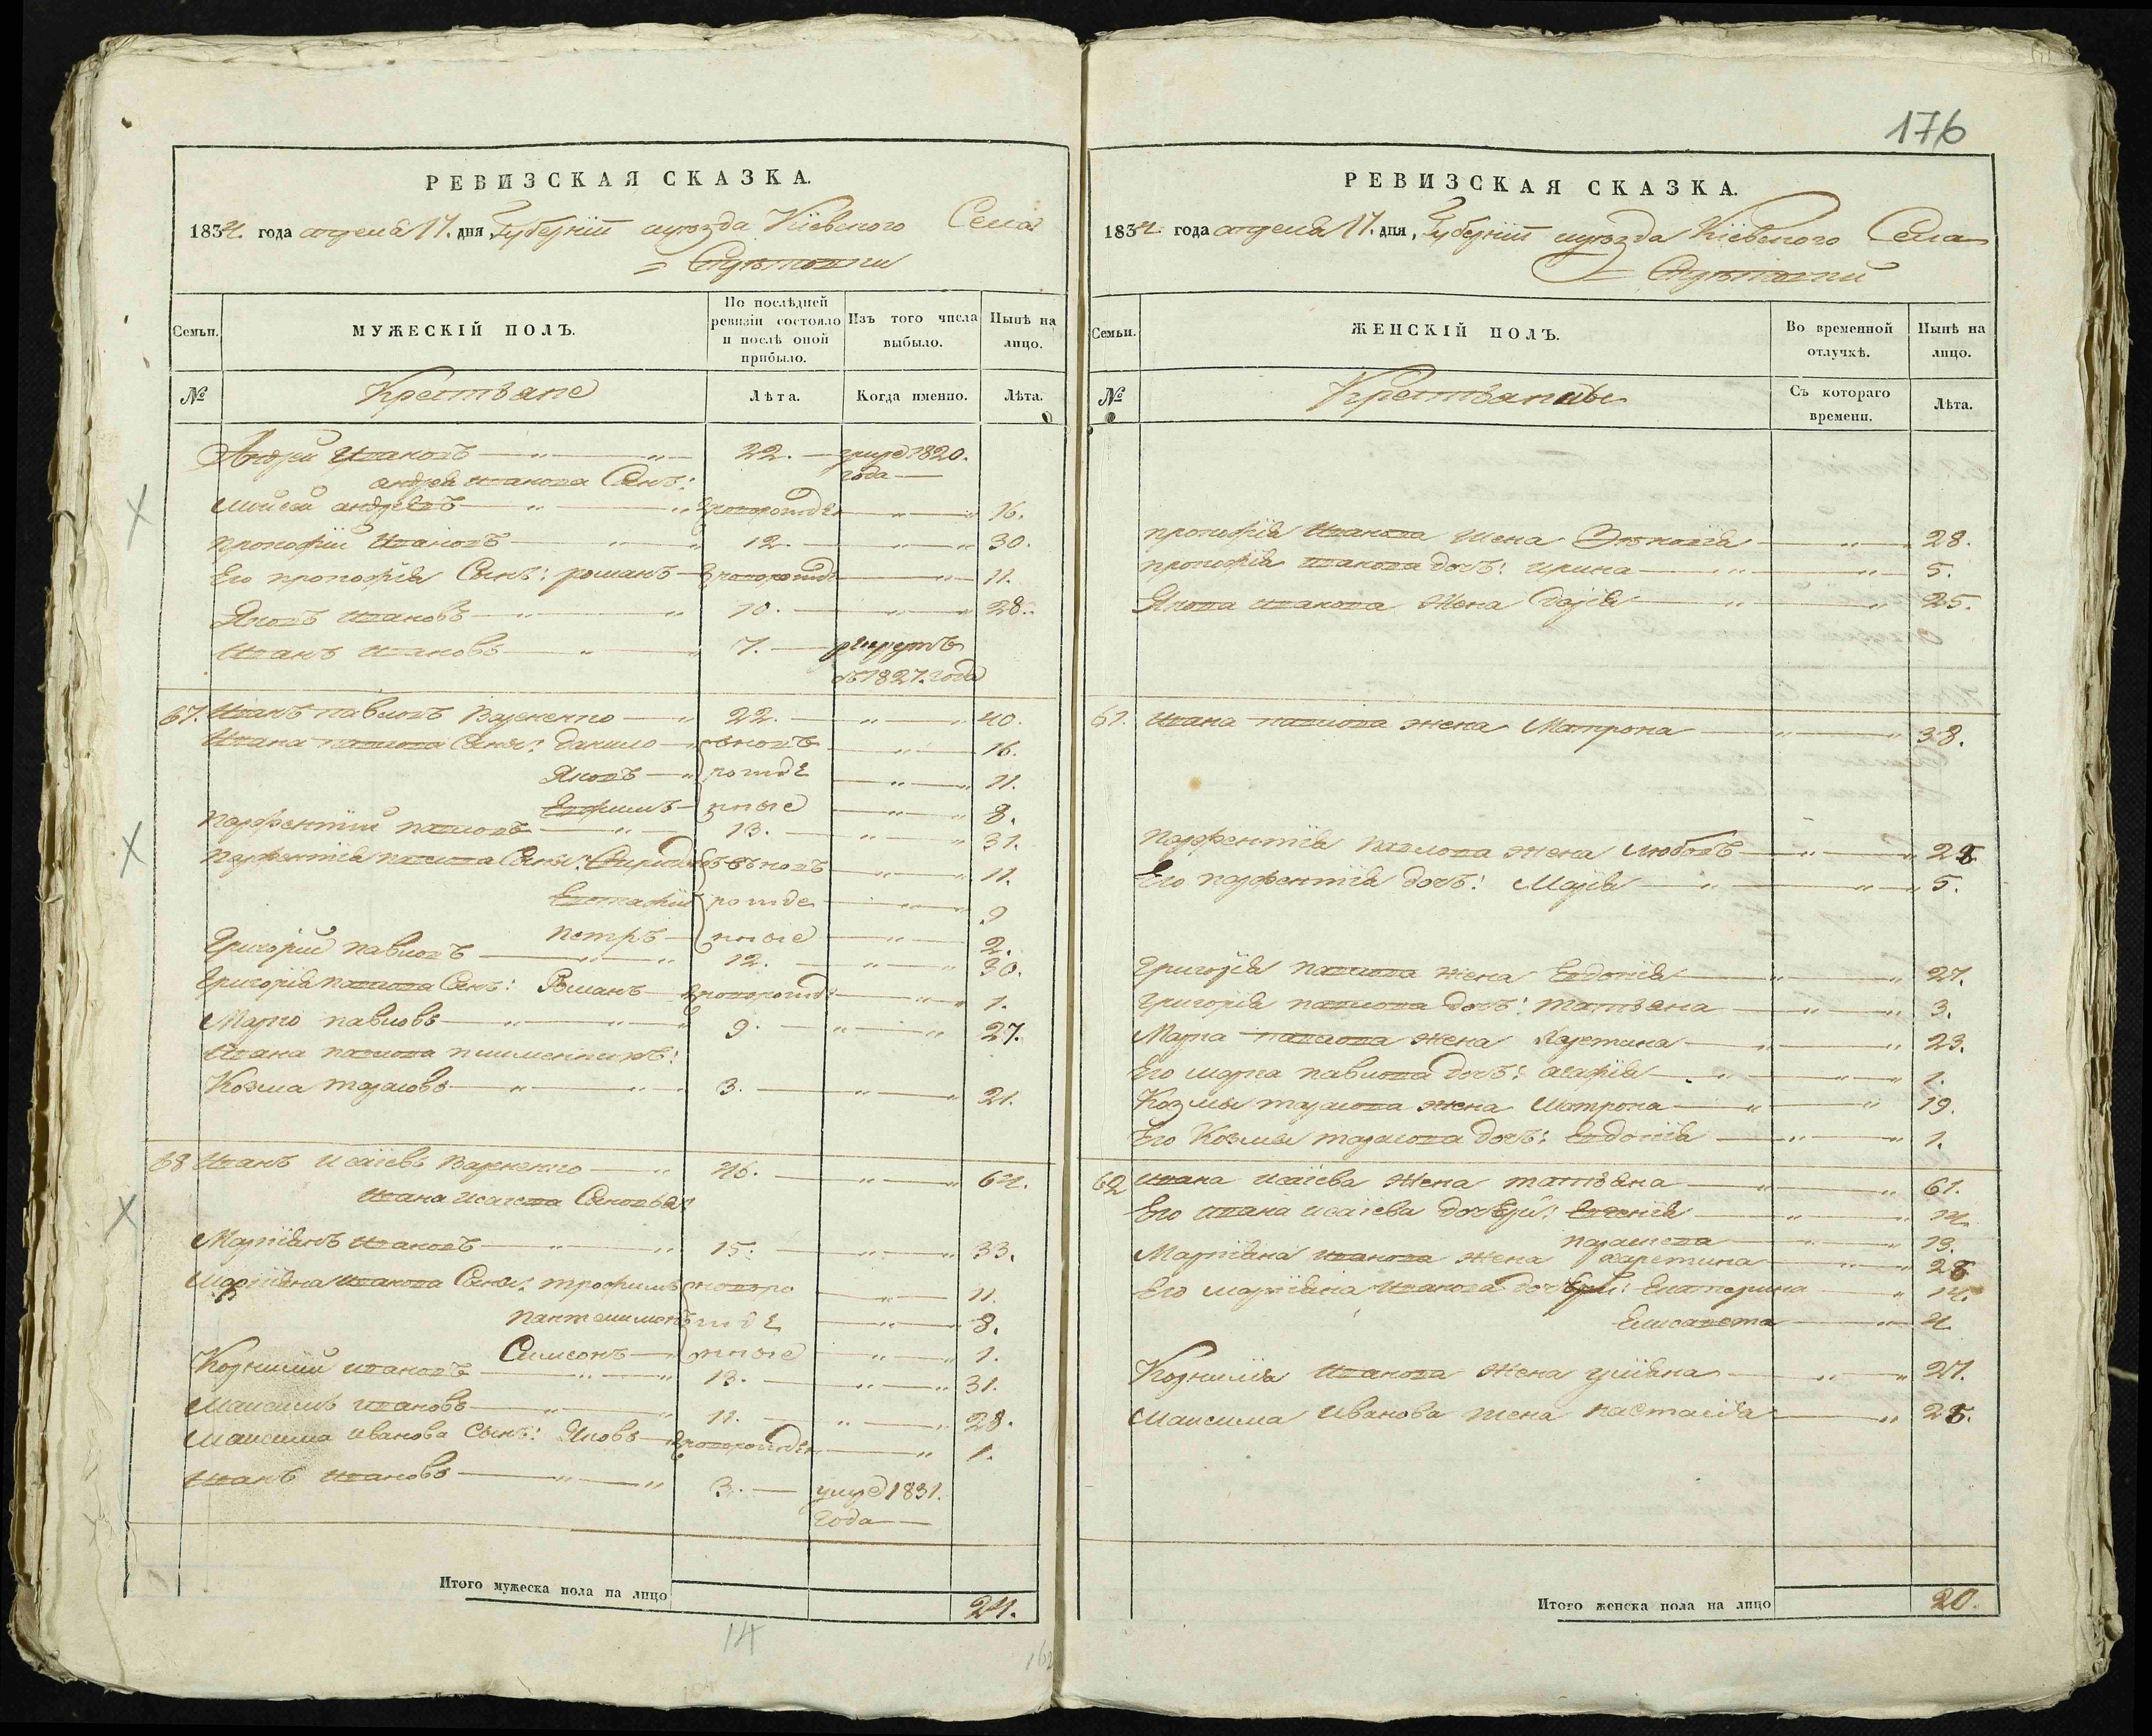 176
РЕВИЗСКАЯ СКАЗКА.
1834. года апреля 17. дня, Губернiи и уезда Кiевского Села
МУЖЕСКІЙ ПОЛЪ.
Семьи.
По послѣдней ревизіи состояло и послѣ оной прибыло.
Изъ того числа выбыло.
Нынѣ на лицо.
№
Крестьяне
Лѣта.
Когда именно.
Лѣта.
Андрей Ивановъ 22. умре 1820.
года
андрея иванова Сынъ:
Мойсей андреевъ новорожде 16.
прокофiй Ивановъ 12. 30.
Его прокофiя Сынъ: романъ новорожде 11.
Яковъ ивановъ 10. 28.
Иванъ ивановъ 7. рекрутъ
въ 1827. годе
67. Иванъ павловъ 22. 40.
Ивана павлова Сыны: данило вновъ 16.
Яковъ рожде 11.
Ефимъ нные 8.
парфентiй павловъ 13. 31.
парфентiя павлова Сыны: Свиридонъ вновъ 11.
Евстафiй рожде 9
петръ нные 2.
Григорiй павловъ 12. 30.
Григорiя павлова Сынъ: Романъ новорожде 1.
Марко павловъ 9. 27.
Ивана павлова племенникъ:
Козма тарасовъ 3. 21.
68 Иванъ исаiевъ 46. 64.
ивана исаева Сыновья:
Маркiянъ ивановъ 15. 33.
Маркiяна иванова Сыны: трофимъ новоро 11.
пантелимонъ жде 8.
Симеонъ нные 1.
Корнилiй ивановъ 13. 31.
Максимъ ивановъ 11. 28.
Максима иванова Сынъ: Яковъ новорожден 1.
иванъ ивановъ 3. умре 1831.
года
Итого мужеска пола на лицо 24.
14
РЕВИЗСКАЯ СКАЗКА.
1834. года апреля 17. дня, Губернiи и уезда Кiевского Села
Семьи.
ЖЕНСКІЙ ПОЛЪ.
Во временной отлучкѣ.
Нынѣ на лицо.
№
Крестьянки
Съ котораго времени.
Лѣта.
прокофiя Иванова жена 28.
прокофiя иванова дочь: ирина 5.
Якова иванова жена дарiя 25.
67. ивана павлова жена Матрона 38.
парфентiя павлова жена любовъ 28
Его парфентiя дочь: Марiя 5.
Григорiя павлова жена Евдокiя 27.
Григорiя павлова дочь: татьяна 3.
Марка павлова жена Харетина 23.
Его марка павлова дочь: агафiя 1.
Козмы тарасова жена Матрона 19.
Его Козмы тарасова дочь: Евдокiя 1.
68 ивана исаiева жена татьяна 61.
Его ивана исаiева дочери: Евгенiя 14
параскева 13.
Маркiяна иванова жена харетина 28
Его маркiяна иванова дочери: Екатерина 14.
Елисавета 4
Корнилiя иванова жена улiяна 27.
Максима иванова жена настасiя 25.
Итого женска пола на лицо 20.